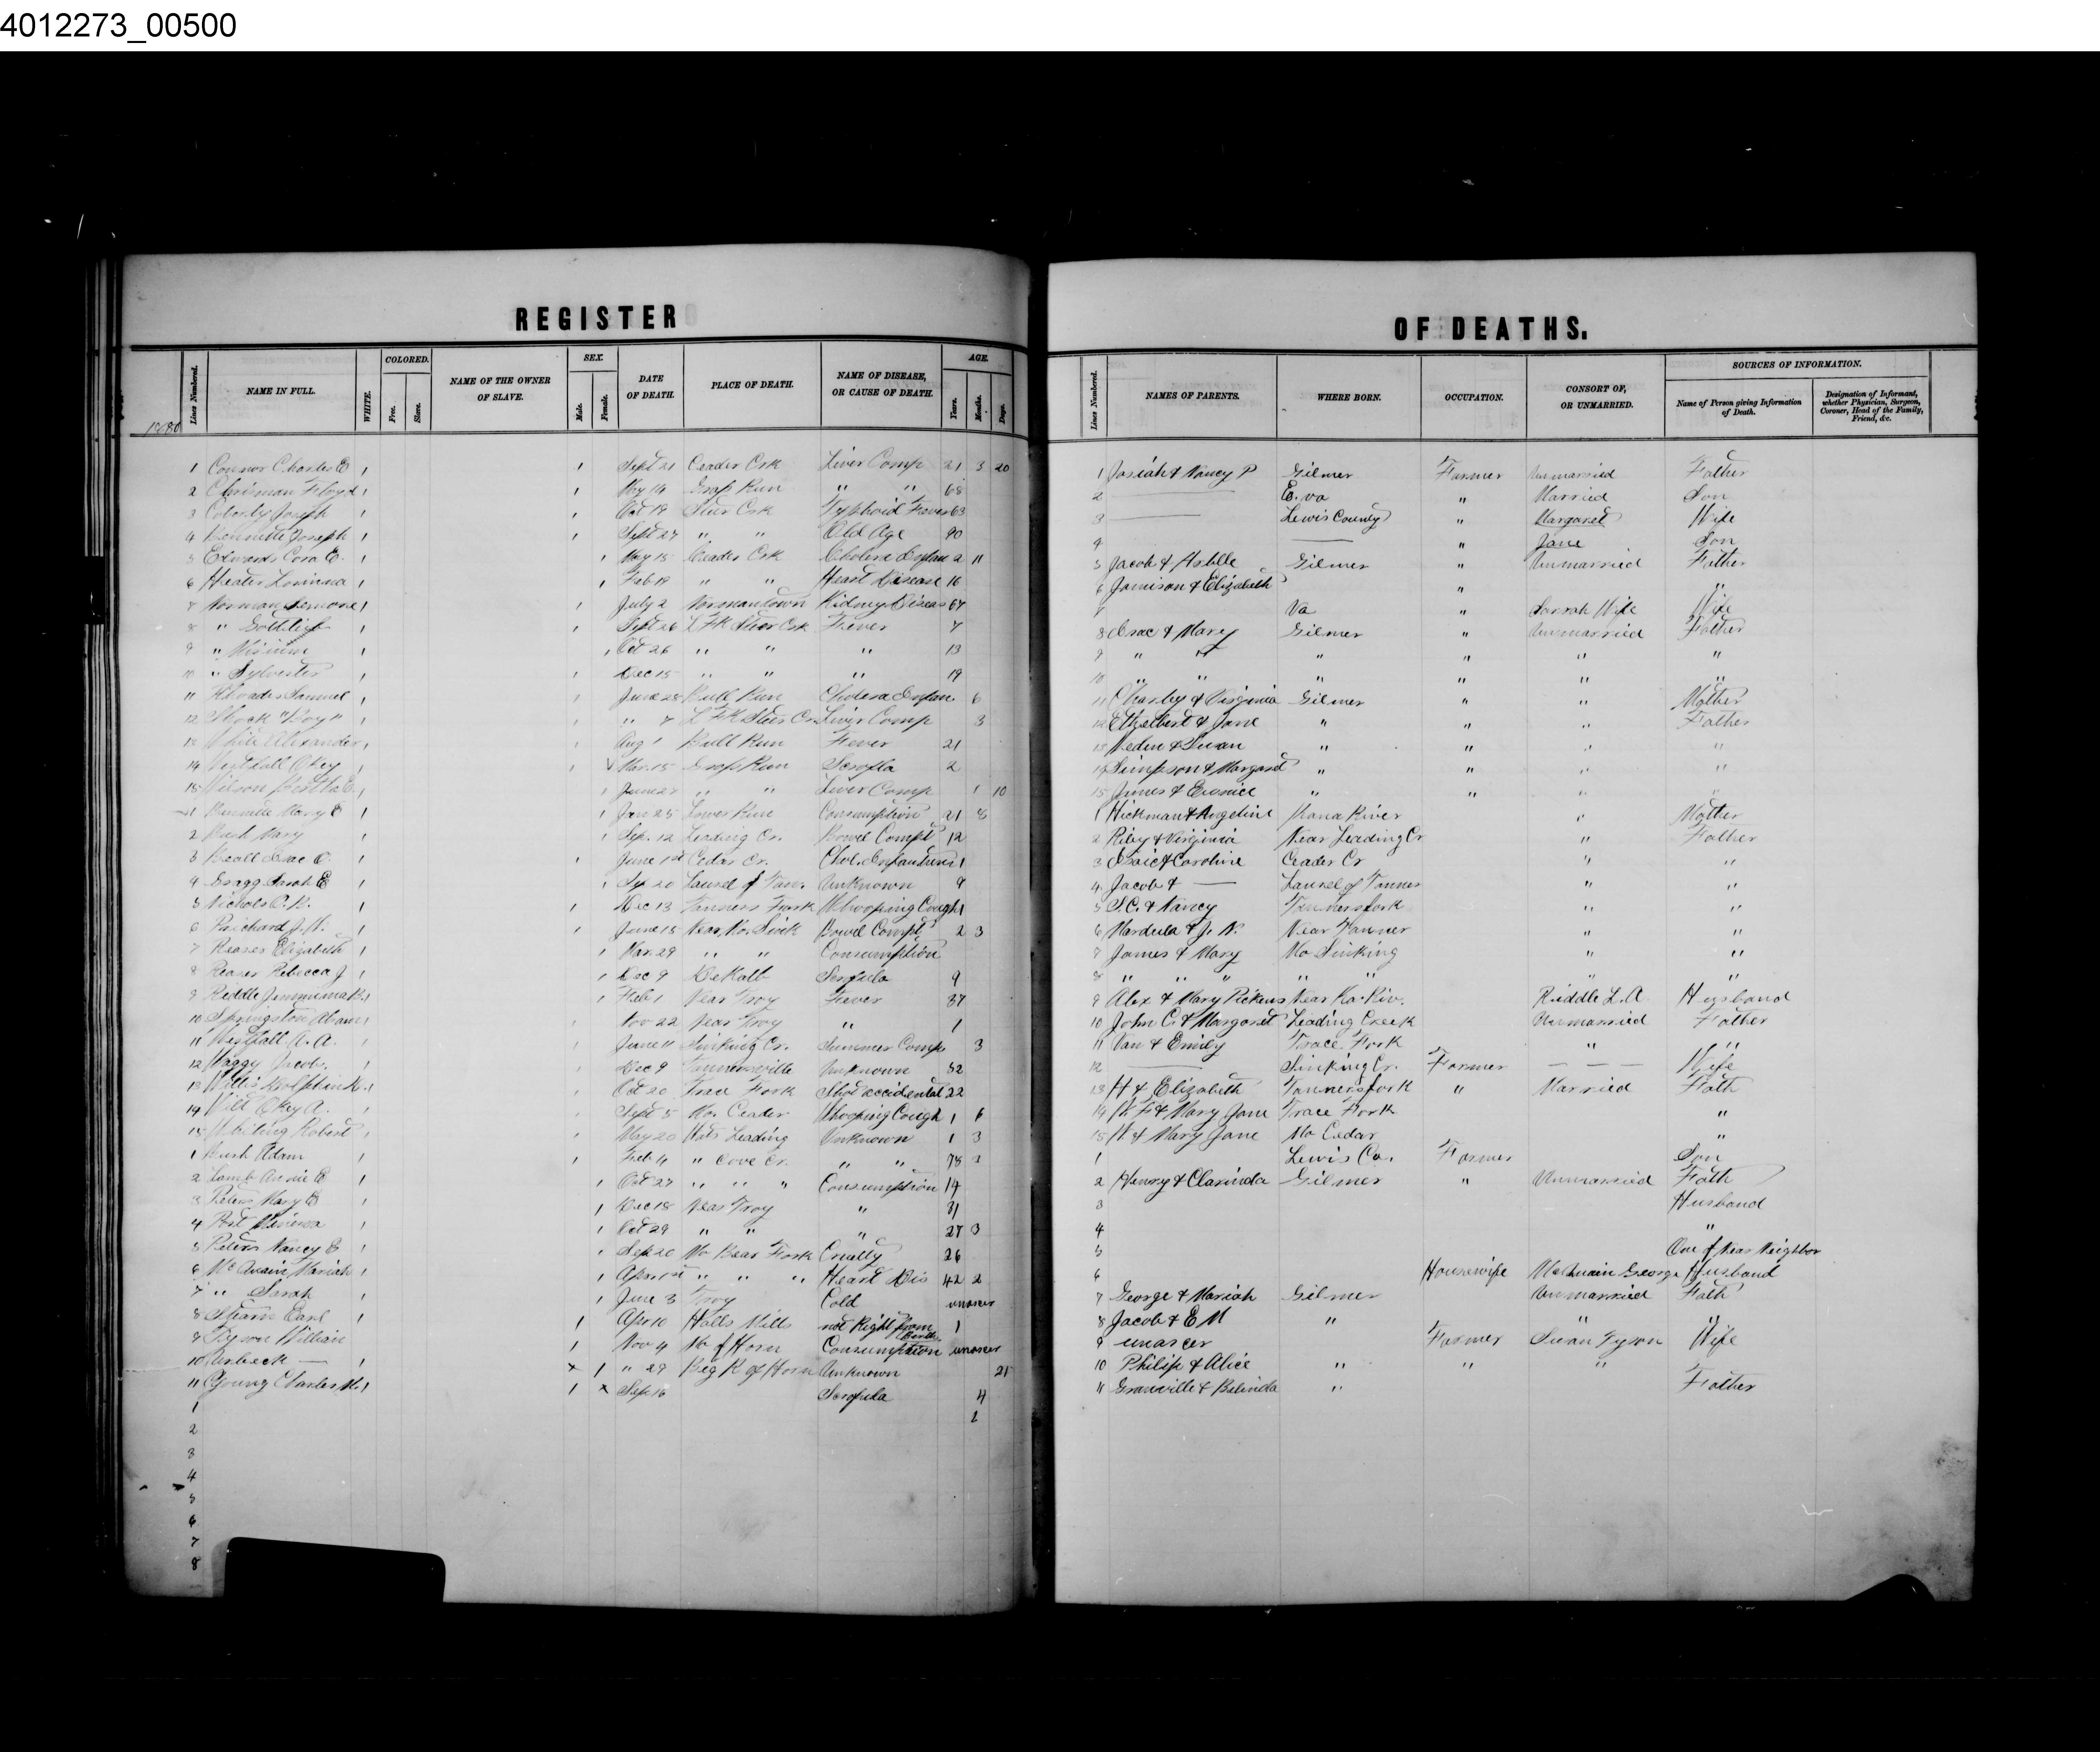 4012273_00500
REGISTER
OF DEATHS.
1880
Lines Numbered. NAME IN FULL. WHITE. COLORED. Free. Slave. NAME OF THE OWNER OF SLAVE. SEX. Male. Female. DATE OF DEATH. PLACE OF DEATH. NAME OF DISEASE, OR CAUSE OF DEATH. AGE. Years. Months. Days.
1 Connor Charles E 1 1 Sept 21 Ceader Crk Liver Comp 21 3 20
2 Chrisman Floyd 1 1 May 14 Grass Run " " 68
3 Coberly Joseph 1 1 Oct 19 Steer Crk Typhoid Fever 63
4 Bennette Joseph 1 1 Sept 27 " " Old Age 90
5 Edwards Cora E. 1 1 May 15 Ceader Crk Cholera Infum 2 11
6 Heater 1 1 Feb 19 " " Heart Disease 16
7 Norman 1 1 July 2 Normantown Kidney Diseas 67
8 " Gottlieb 1 1 Sept 26 L FK Steer Crk Fever 7
9 " 1 1 Oct 26 " " " 13
10 " Sylvester 1 1 Dec 15 " " " 19
11 Rhoades Samuel 1 1 June 28 Bull Run Cholera Infum 6
12 Stock "Boy" 1 1 " 7 L FK Steer Cr Liver Comp 3
13 White Alexander 1 1 Aug 1 Bull Run Fever 21
14 Westfall Okey 1 1 Mar. 15 Grass Run Scrofla 2
15 Wilson Bertha E. 1 1 June 27 " " Liver Comp 1 10
1 Bennette Mary E 1 1 Jan 25 Lower Run Consumption 21 8
2 Bush Mary 1 1 Sep. 12 Leading Cr. Bowel Compt 12
3 Beall Isac O. 1 1 June 1st Cedar Cr. Chol. Infantum 1
4 Gragg Sarah E 1 1 Sep 20 Laurel of Tan. Unknown 9
5 Nichols 1 1 Dec 13 Tanners Fork Whooping Cough 1
6 Prichard J. N. 1 1 June 15 Near Mo. Sink Bowel Compt 2 3
7 Reaser Elizabeth 1 1 Mar. 29 " " Consumption
8 Reaser Rebecca J 1 1 Dec 9 DeKalb Scrofula 9
9 Riddle Jemmima 1 1 Feb 1 Near Troy Fever 37
10 Springston Abram 1 1 Nov 22 Near Troy " 1
11 Westfall A. A. 1 1 June 11 Sinking Cr. Summer Comp 3
12 Waggy Jacob. 1 1 Dec 9 Tannersville Unknown 52
13 Willis 1 1 Oct 20 Trace Fork Shot accidental 22
14 Wilt Okey A. 1 1 Sept 5 Mo. Ceader Whooping Cough 1 6
15 Whiting Robert 1 1 May 20 Leading Unknown 1 3
1 Bush Adam 1 1 Feb 4 " Cove Cr. " " 78
2 Lamb Annie E 1 1 Oct 27 " " " Consumption 14
3 Peters Mary E 1 1 Dec 18 Near Troy " 31
4 Post Minerva 1 1 Oct 29 " " " 27 3
5 Peters Nancy E 1 1 Sep 20 Mo Bear Fork Cruelty 26
6 McQuain Mariah 1 1 Apr. 1st " " " Heart Dis 42 2
7 " Sarah 1 1 June 3 Troy Cold unascer
8 Stearn Earl 1 Apr 10 Halls Mills not Right from Birth 1
9 Tyson William 1 Nov 4 Mo of Horn Consumption unascer
10 — 1 x 1 " 29 Big R of Horn Unknown 21
11 Young Charles M. 1 1 x Sep 16 Scrofula 4
1 2
2
3
4
5
6
7
8
Lines Numbered. NAMES OF PARENTS. WHERE BORN. OCCUPATION. CONSORT OF, OR UNMARRIED. SOURCES OF INFORMATION. Name of Person giving Information of Death. Designation of Informant, whether Physician, Surgeon, Coroner, Head of the Family, Friend, &c.
1 Josiah & Nancy P Gilmer Farmer Unmarried Father
2 — E. va " Married Son
3 — Lewis County " Margaret Wife
4 — " Jane Son
5 Jacob & Gilmer " Unmarried Father
6 Jamison & Elizabeth " "
7 Va " Sarrah Wife Wife
8 Isac & Mary Gilmer " Unmarried Father
9 " " " " " "
10 " " " " " "
11 Charley & Virginia Gilmer " " Mother
12 Ethelbert & Jane " " " Father
13 & Susan " " " "
14 Simpson & Margaret " " " "
15 James & Eunice " " " "
1 Hickman & Angeline Kana River " Mother
2 Riley & Virginia Near Leading Cr " Father
3 Isaic & Caroline Ceader Cr " "
4 Jacob & — Laurel of Tanner " "
5 S. C. & Nancy Tannersfork " "
6 Mardula & J. N. Near Tanner " "
7 James & Mary Mo Sinking " "
8 " " " " " " "
9 Alex & Mary Pickens Near Ka. Riv. Riddle L. A. Husband
10 John C. & Margaret Leading Creek Unmarried Father
11 Van & Emily Trace Fork " "
12 — Sinking Cr. Farmer — — — Wife
13 H & Elizabeth Tannersfork " Married Fath
14 W F & Mary Jane Trace Fork "
15 H & Mary Jane Mo Cedar "
1 Lewis Co. Farmer Son
2 Henry & Clarinda Gilmer " Unmarried Fath
3 Husband
4 "
5 One of Near Neighbor
6 Housewife McQuain George Husband
7 George & Mariah Gilmer Unmarried Fath
8 Jacob & E M " " "
9 unascer Farmer Susan Tyson Wife
10 Philip & Alice " " "
11 Granville & Belinda " Father